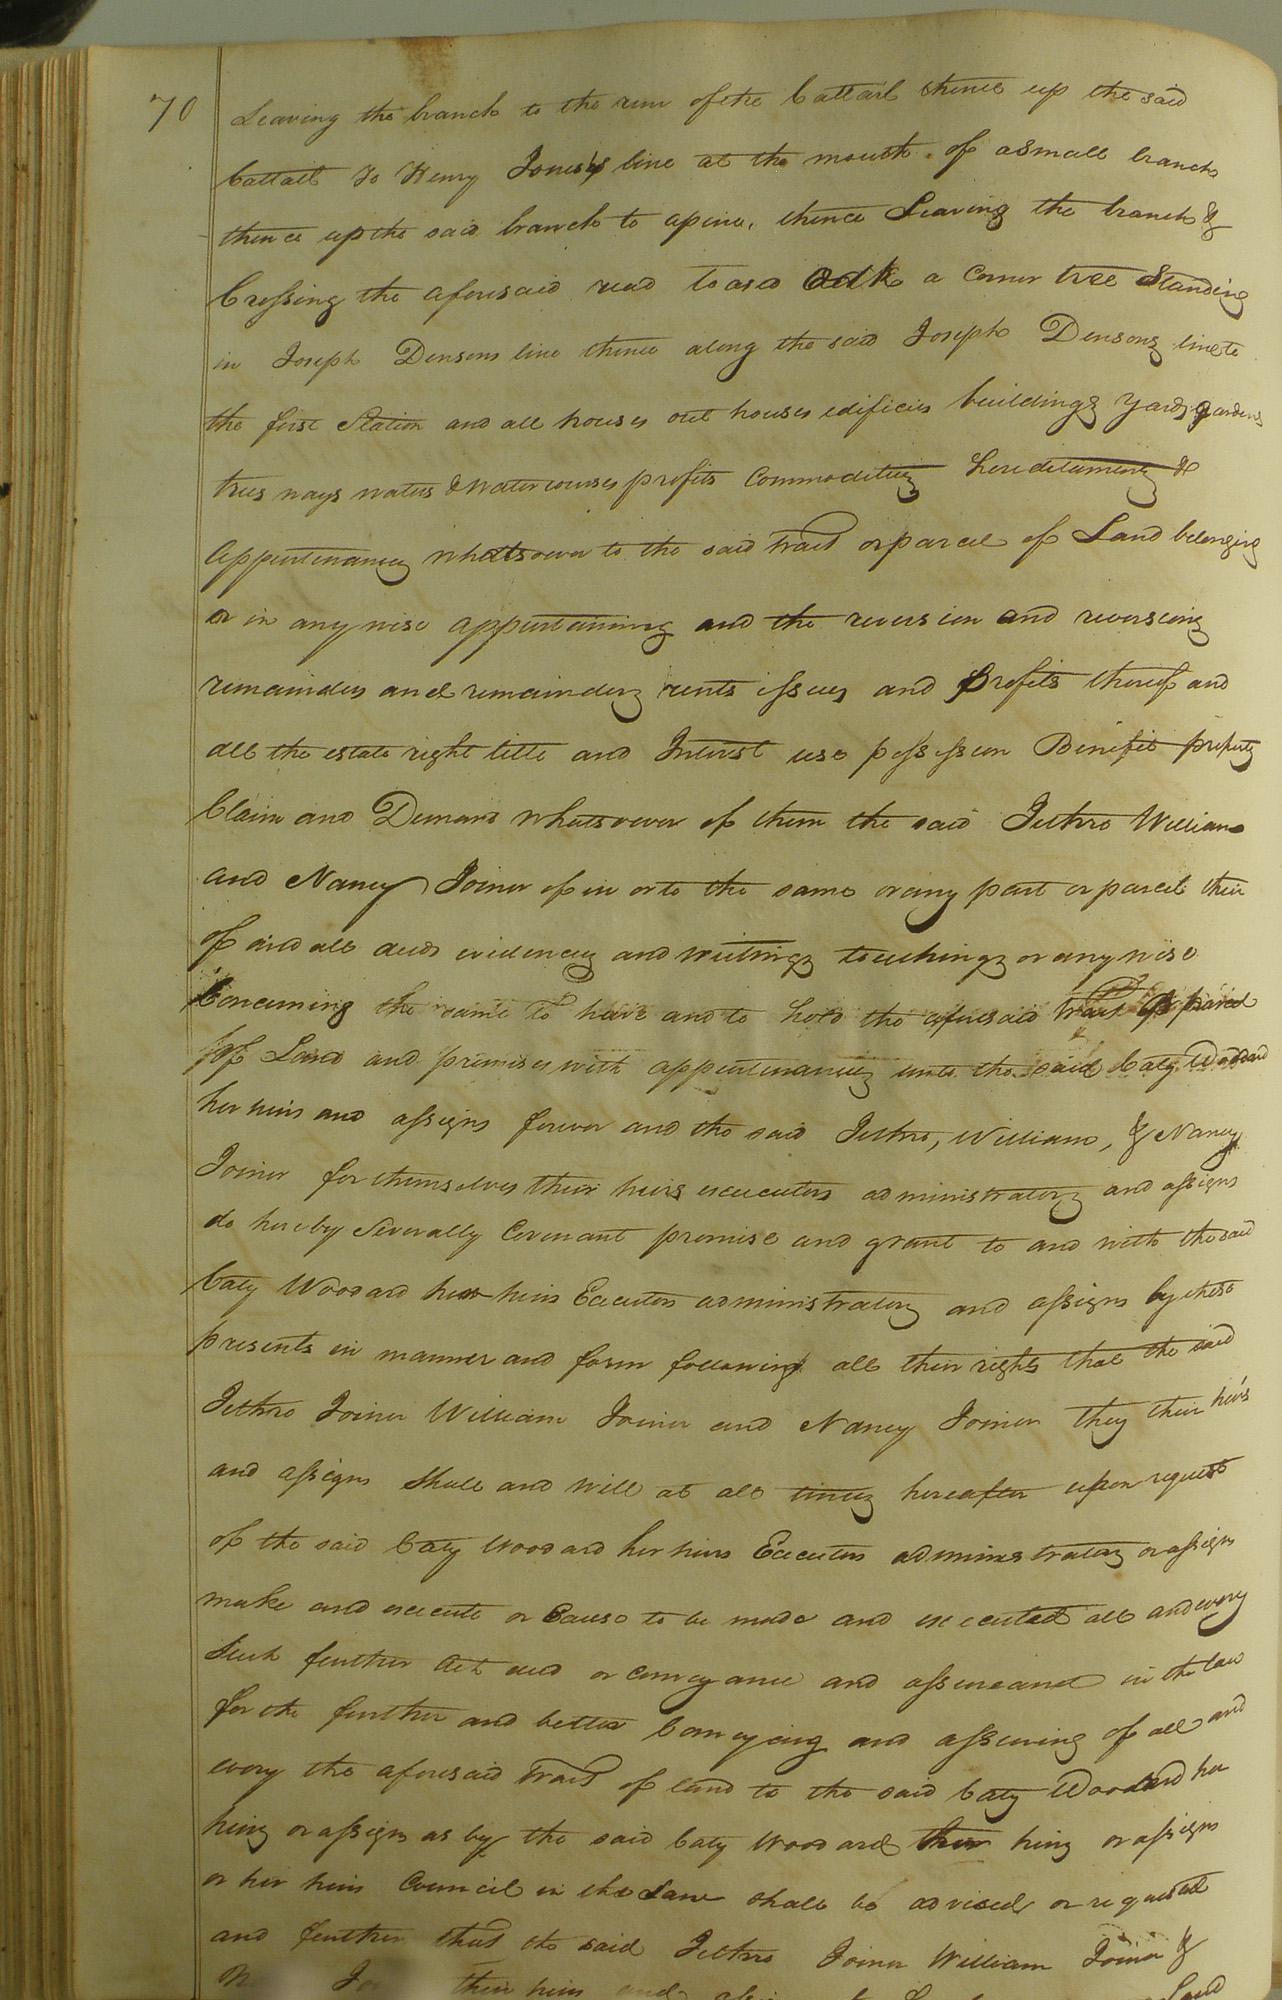 70
Leaving the branch to the run of the Cattail thence up the said
Cattail to Henry Jones's line at the mouth of a small branch
thence up the said branch to a pine, thence Leaving the branch &
Crossing the aforesaid road to a red Oak a Corner tree Standing
in Joseph Densons line thence along the said Joseph Densons line to
the first Station and all houses out houses edificies buildings yards gardens
trees ways waters & watercourses profits Commodities hereditaments &
appurtenances whatsoever to the said tract or parcel of Land belonging
or in any wise appertaining and the reversion and reversions
remainders and remainders rents issues and profits thereof and
all the estate right title and Interest use possession Benefit property
Claim and Demand whatsoever of them the said Jethro William
and Nancy Joiner of in or to the same or any part or parcel there
of and all deeds evidences and writings touchings or any wise
Concerning the same To have and to hold the aforesaid tract or parcel
of Land and premises with appurtenances unto the said Caty Woodard
her heirs and assigns forever and the said Jethro, William, & Nancy
Joiner for themselves their heirs executors administrators and assigns
do hereby Severally Covenant promise and grant to and with the said
Caty Woodard her heirs Executors administrators and assigns by these
presents in manner and form following all their rights that the said
Jethro Joiner William Joiner and Nancy Joiner they their heirs
and assigns Shall and will at all times hereafter upon request
of the said Caty Woodard her heirs Executors administrators or assigns
make and execute or Cause to be made and executed all and every
Such further act deed or conveyance and assurance in the law
for the further and better Conveying and assuring of all and
every the aforesaid tract of land to the said Caty Woodard her
heirs or assigns as by the said Caty Woodard heirs or assigns
or her heirs Council in the Law shall be advised or requested
and further that the said Jethro Joiner William Joiner &
their heirs and Land